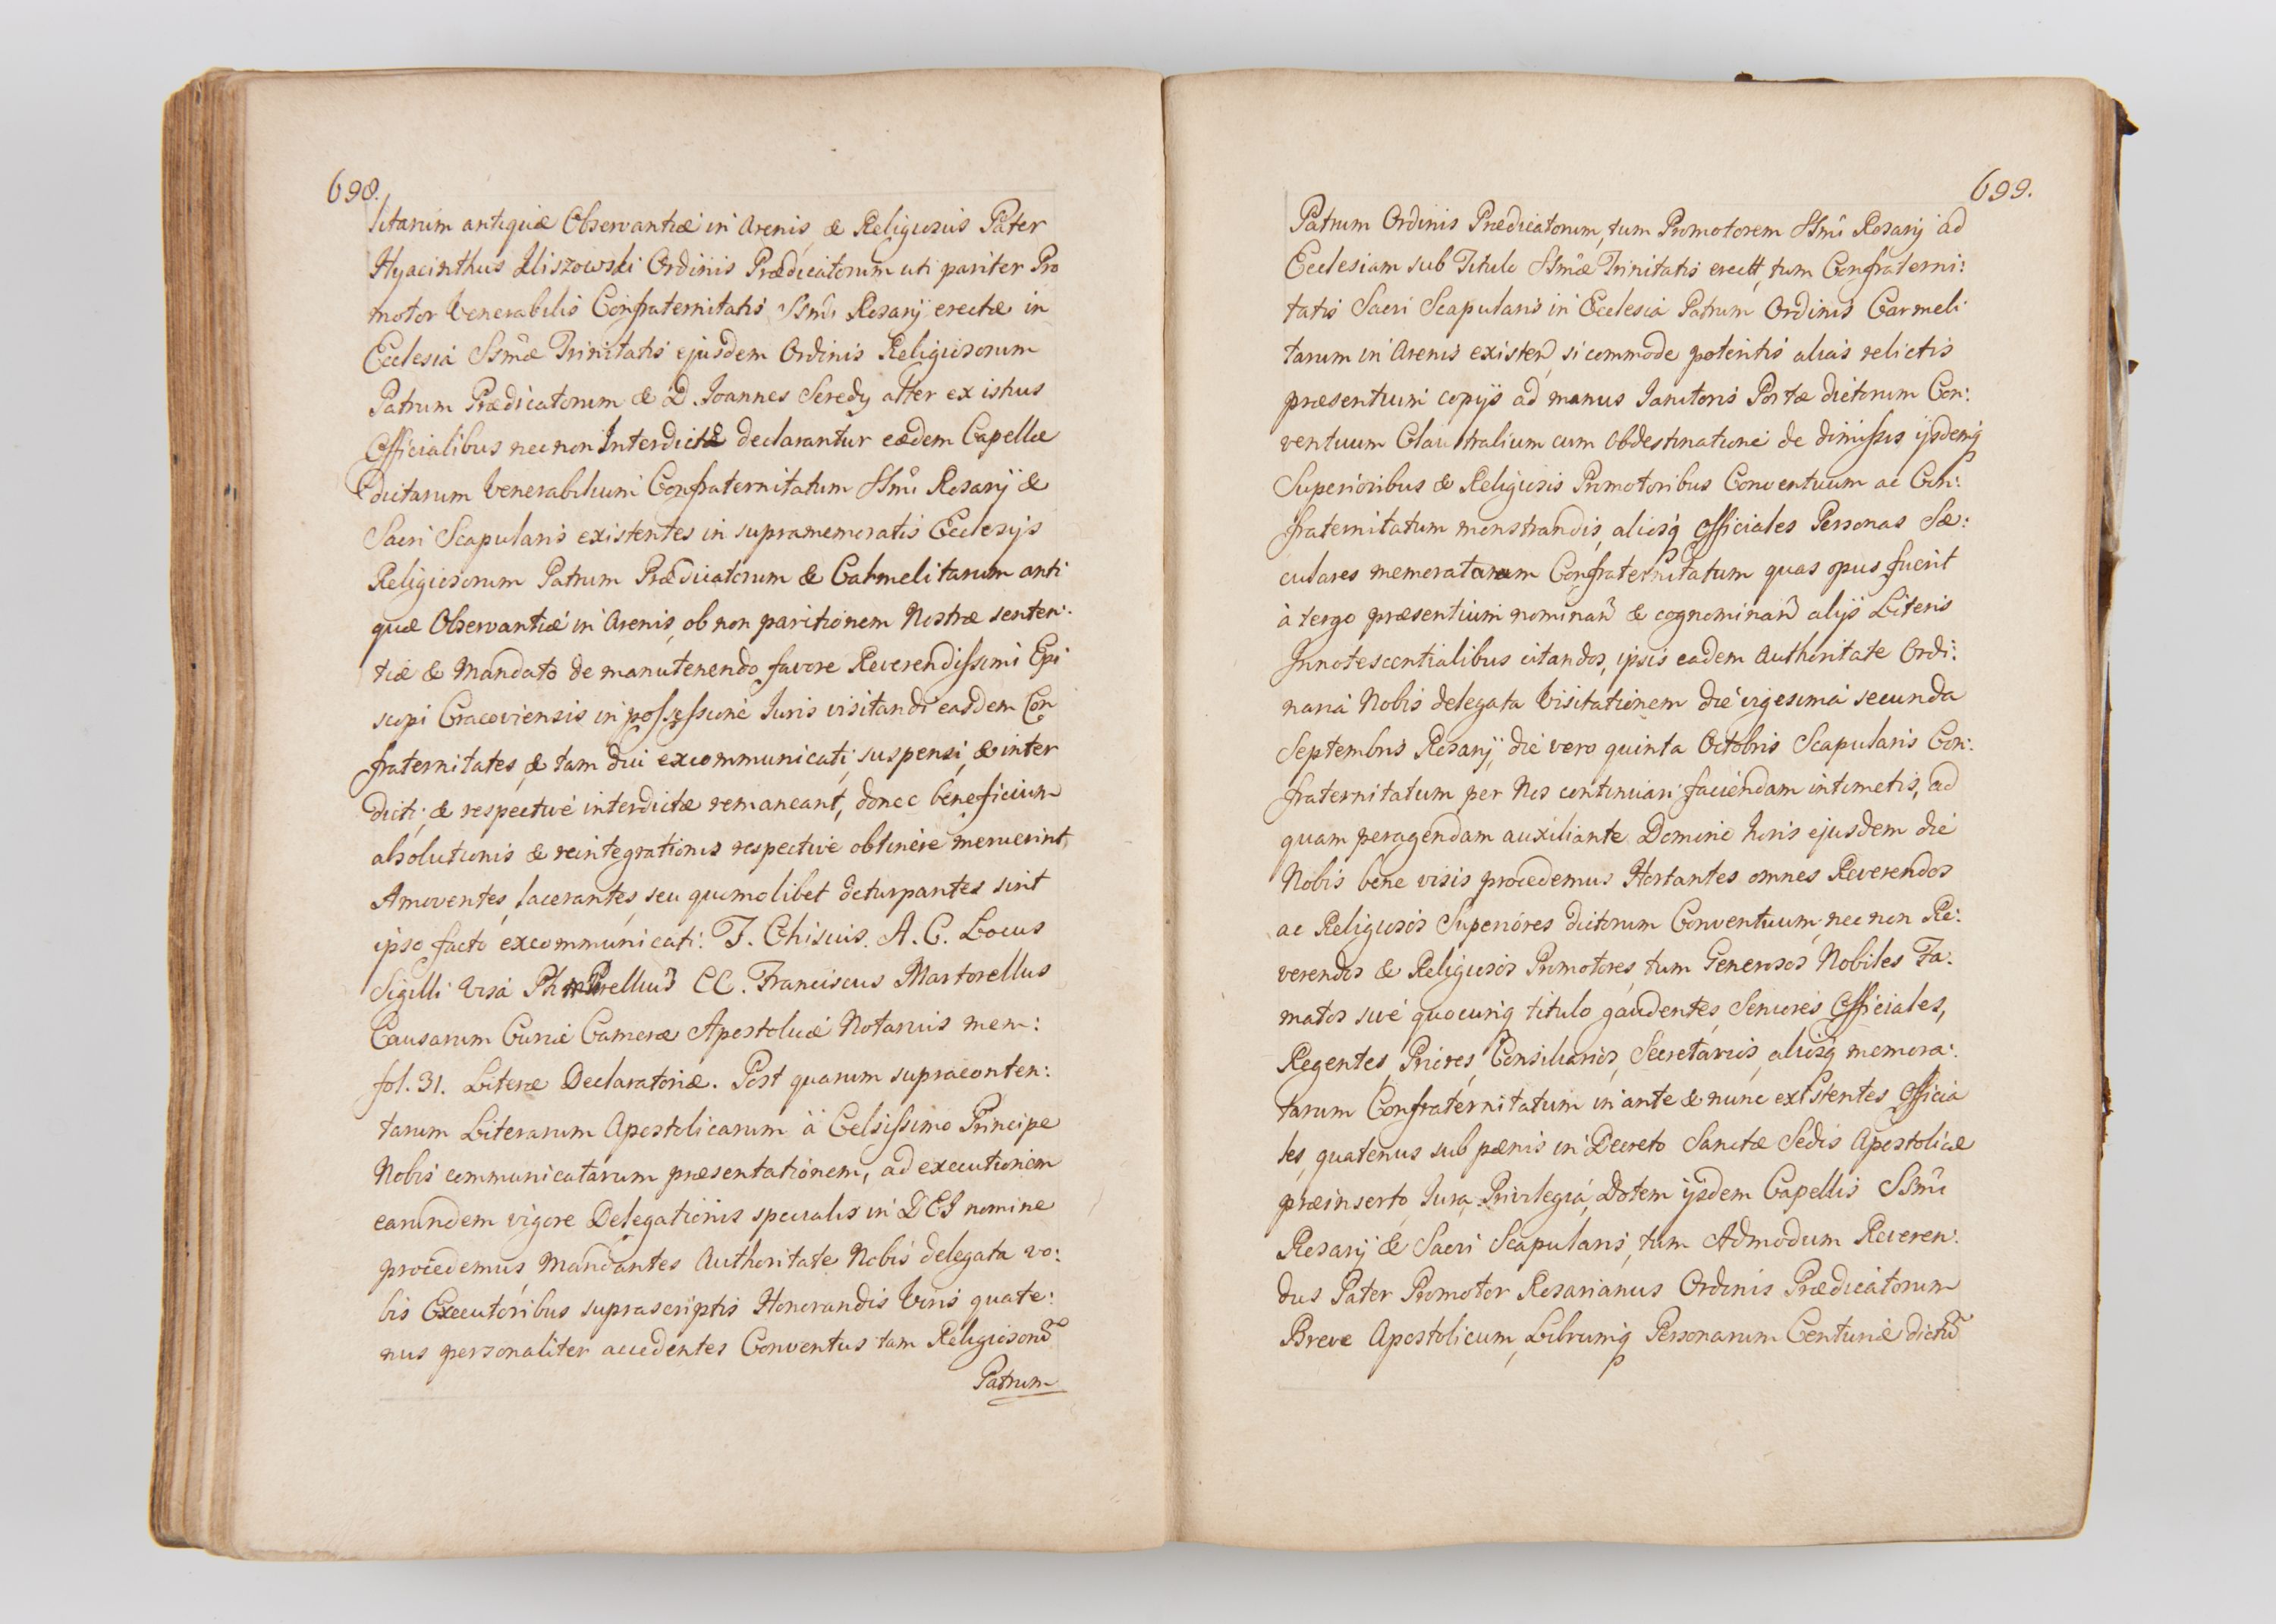 698.
litarum antiquæ Observantiæ in Arenis, & Religiosus Pater
Hyacinthus Uliszowski Ordinis Prædicatorum uti pariter Pro
motor Venerabilis Confraternitatis SSmi Rosarÿ erectæ in
Ecclesia SSmæ Trinitatis ejusdem Ordinis Religiosorum
Patrum Prædicatorum & D. Joannes Seredy alter ex istius
Officialibus nec non Interdictæ declarantur eædem Capellæ
dictarum Venerabilium Confraternitatum SSmi Rosarÿ &
Sacri Scapularis existentes in supramemoratis Ecclesÿs
Religiosorum Patrum Prædicatorum & Carmelitarum anti
quæ Observantiæ in Arenis, ob non paritionem Nostræ senten:
tiæ & Mandato de manutenendo favore Reverendissimi Epi
scopi Cracoviensis in possessione Juris visitandi easdem Con
fraternitates, & tam diu excommunicati, suspensi, & inter
dicti, & respective interdictæ remaneant, donec beneficium
absolutionis & reintegrationis respective obtinere meruerint,
Amoventes, lacerantes, seu quomolibet deturpantes sint
ipso facto excommunicati. F. Ghisius. A. C. Locus
Sigilli Visa Ph Prellius CC. Franciscus Martorellus
Causarum Curiæ Cameræ Apostolicæ Notarius mem:
fol. 31. Literæ Declaratoriæ. Post quarum supraconten:
tarum Literarum Apostolicarum à Celsissimo Principe
Nobis communicatarum præsentationem, ad executionem
earundem vigore Delegationis specialis in DEI nomine
procedemus, Mandantes Authoritate Nobis delegata vo:
bis Executoribus suprascriptis Honorandis Viris quate:
nus personaliter accedentes Conventus tam Religiosorũ
Patrum
699.
Patrum Ordinis Prædicatorum, tum Promotorem SSmi Rosarÿ ad
Ecclesiam sub Titulo SSmæ Trinitatis erectt, tum Confraterni:
tatis Sacri Scapularis in Ecclesia Patrum Ordinis Carmeli
tarum in Arenis existen, si commode potentis alias relictis
præsentium copÿs ad manus Janitoris Portæ dictorum Con:
ventuum Claustralium cum Obdestinatione de dimissis ÿsdemq
Superioribus & Religiosis Promotoribus Conventuum ac Con:
fraternitatum monstrandis, aliosq Officiales Personas Sæ:
culares memoratarum Confraternitatum quas opus fuerit
à tergo præsentium nominan & cognominan alÿs Literis
Innotescentialibus citandos, ipsis eadem Authoritate Ordi:
naria Nobis delegata Visitationem die vigesima secunda
Septembris Rosarÿ, die vero quinta Octobris Scapularis Con:
fraternitatum per Nos continuari faciendam intimetis, ad
quam peragendam auxiliante Domino horis ejusdem die
Nobis bene visis procedemus Hortantes omnes Reverendos
ac Religiosos Superiores dictorum Conventuum, nec non Re:
verendos & Religiosos Promotores, tum Generosos Nobiles Fa:
matos sive quocunq titulo gaudentes, Seniores Officiales,
Regentes, Priores, Consiliarios, Secretarios, aliosq memora:
tarum Confraternitatum in ante & nunc existentes Officia
les, quatenus sub pænis in Decreto Sanctæ Sedis Apostolicæ
præinserto, Jura, Privilegia, Dotem ÿsdem Capellis SSmi
Rosarÿ & Sacri Scapularis, tum Admodum Reveren:
dus Pater Promotor Rosarianus Ordinis Prædicatorum
Breve Apostolicum, Librumq Personarum Centuriæ dictũ